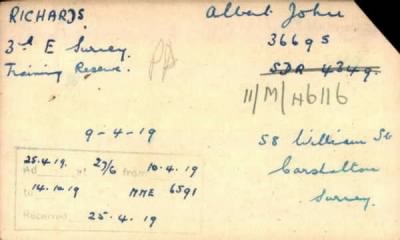 RICHARDS
Albert John
3d E Surrey.
Training Reserve.
36695
SDR 4349.
11/M/H6116
9-4-19
25.4.19. 27/6 10.4.19
Ad at from
to 14.10.19 MME 6591
Received 25.4.19
58 William St
Carshalton
Surrey.